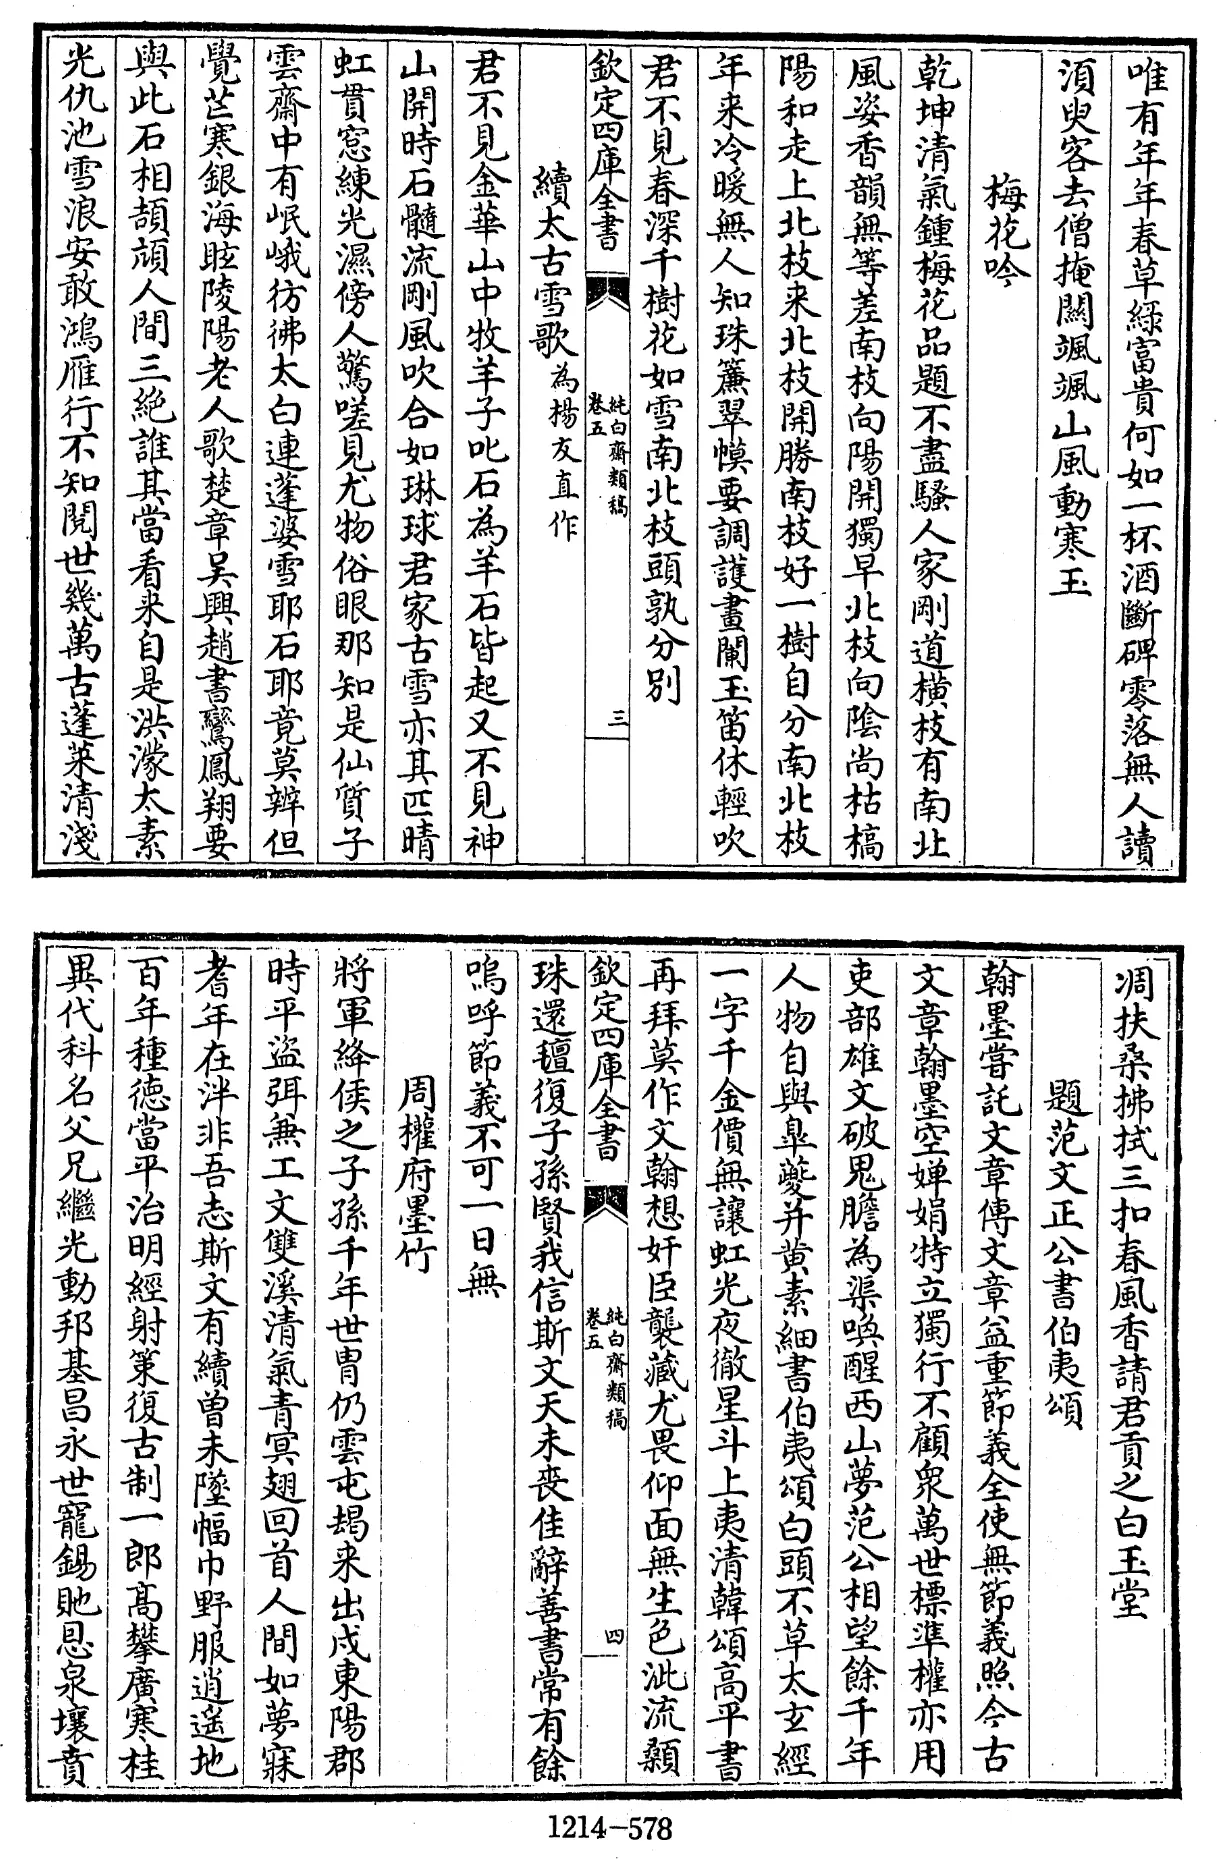 唯有年年春草緑富貴何如一杯酒斷碑零落無人讀
湏臾客去僧掩闗颯颯山風動寒玉
梅花吟
乾坤清氣鍾梅花品題不盡騷人家剛道橫枝有南北
風姿香韻無等差南枝向陽開獨早北枝向陰尚枯槁
陽和走上北枝来北枝開勝南枝好一樹自分南北枝
年来冷暖無人知珠簾翠幙要調護畫闌玉笛休輕吹
君不見春深千樹花如雪南北枝頭孰分別
欽定四庫全書
純白齋類稿
卷五
三
續太古雪歌為楊友直作
君不見金華山中牧羊子叱石為羊石皆起又不見神
山開時石髓流剛風吹合如琳球君家古雪亦其匹晴
虹貫窓練光濕傍人驚嗟見尤物俗眼那知是仙質子
雲齋中有岷峨彷彿太白連蓬婆雪耶石耶竟莫辨但
覺芒寒銀海眩陵陽老人歌楚章吴興趙書鸞鳳翔要
與此石相頡頏人間三絶誰其當看来自是洪濛太素
光仇池雪浪安敢鴻雁行不知閱世幾萬古蓬萊清淺
凋扶桑拂拭三扣春風香請君貢之白玉堂
題范文正公書伯夷頌
翰墨嘗託文章傳文章益重節義全使無節義照今古
文章翰墨空嬋娟特立獨行不顧衆萬世標準權亦用
吏部雄文破鬼膽為渠喚醒西山夢范公相望餘千年
人物自與臯夔并黄素細書伯夷頌白頭不草太玄經
一字千金價無讓虹光夜徹星斗上夷清韓頌高平書
再拜莫作文翰想奸臣襲藏尤畏仰面無生色泚流顙
欽定四庫全書
純白齋類稿
卷五
四
珠還氊復子孫賢我信斯文天未喪佳辭善書常有餘
嗚呼節義不可一日無
周權府墨竹
將軍絳侯之子孫千年世胄仍雲屯朅来出戍東陽郡
時平盗弭兼工文雙溪清氣青冥翅回首人間如夢寐
耆年在泮非吾志斯文有續曽未墜幅巾野服逍遥地
百年種德當平治明經射策復古制一郎髙攀廣寒桂
異代科名父兄繼光動邦基昌永世寵錫貤恩泉壤賁
1214-578